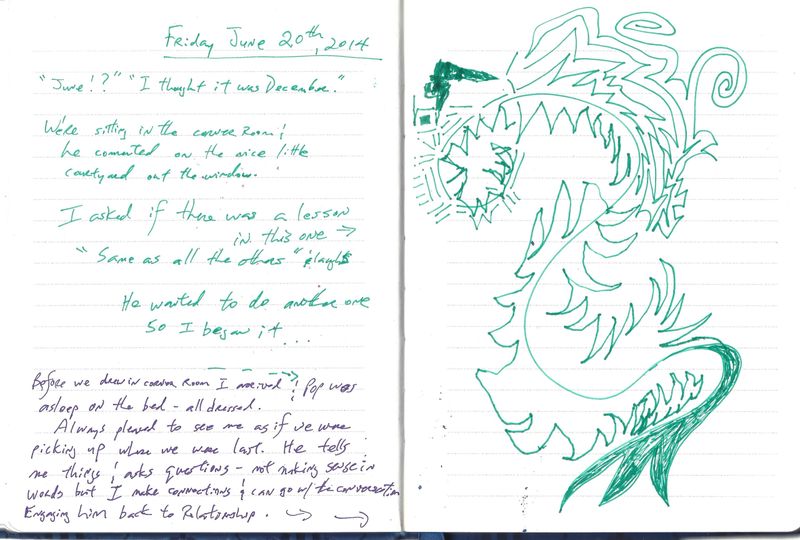 Friday June 20th, 2014
"June!?" "I thought it was December."
We're sitting in the corner Room &
he commented on the nice little
courtyard out the window.
I asked if there was a lesson
in this one →
"Same as all the others" & laughs
He wanted to do another one
so I began it...
Before we drew in corner Room I arrived & Pop was
asleep on the bed - all dressed.
Always pleased to see me as if we were
picking up where we were last. He tells
me things & asks questions - not making sense in
words but I make connections & can go w/ the conversation
Engaging him back to Relationship. → →